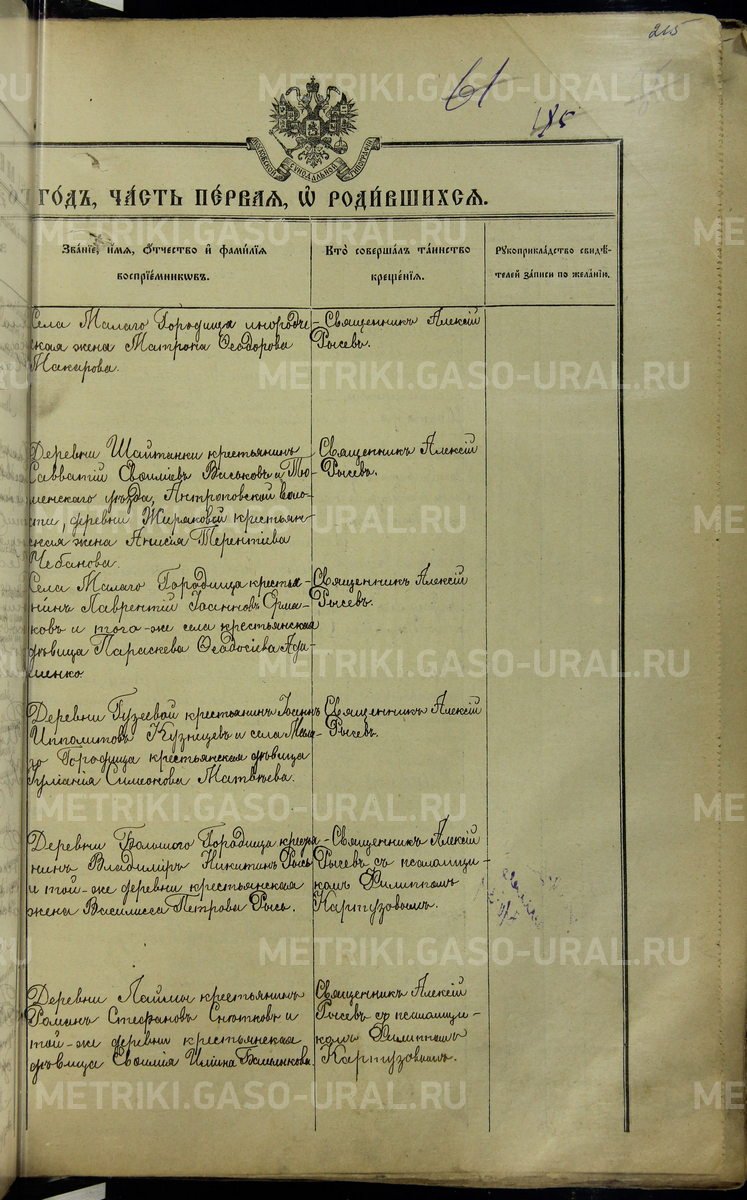 215
61
185
МОСКОВСКОЙ СѴНОДАЛЬНОЙ ТИПОГРАФІИ
ГОДЪ, ЧАСТЬ ПЕРВАЯ, Ѡ РОДИВШИХСЯ.
Званіе, имя, отчество и фамилія воспріемниковъ.
Кто совершалъ таинство крещенія.
Рукоприкладство свидѣтелей записи по желанію.
Села Малаго Городища инородче-
ская жена Матрона Ѳеодорова
Макарова.
Священникъ Алексій
Рысевъ.
Деревни Шайтанки крестьянинъ
Савватій Евѳиміевъ Виськовъ и Тю-
менскаго уѣзда, Антроповской воло-
сти, деревни Жиряковой крестьян-
ская жена Анисія Терентіева
Чебанова.
Священникъ Алексій
Рысевъ.
Села Малаго Городища крестья-
нинъ Лаврентій Іоанновъ Ерма-
ковъ и того-же села крестьянская
дѣвица Параскева Ѳеодосіева
Священникъ Алексій
Рысевъ.
Деревни Гузеевой крестьянинъ Іоаннъ
Ипполитовъ Кузнецевъ и села Мала-
го Городища крестьянская дѣвица
Іуліанія Симеонова Матвѣева.
Священникъ Алексій
Рысевъ.
Деревни Большого Городища крестья-
нинъ Владиміръ Никитинъ Рысь
и той-же деревни крестьянская
жена Василисса Петрова Рысь.
Священникъ Алексій
Рысевъ съ псаломщи-
комъ Филиппомъ
Картузовымъ.
Деревни Лаймы крестьянинъ
Романъ Стефановъ и
той-же деревни крестьянская
дѣвица Евѳимія Иліина
Священникъ Алексій
Рысевъ съ псаломщи-
комъ Филиппомъ
Картузовымъ.
METRIKI.GASO-URAL.RU